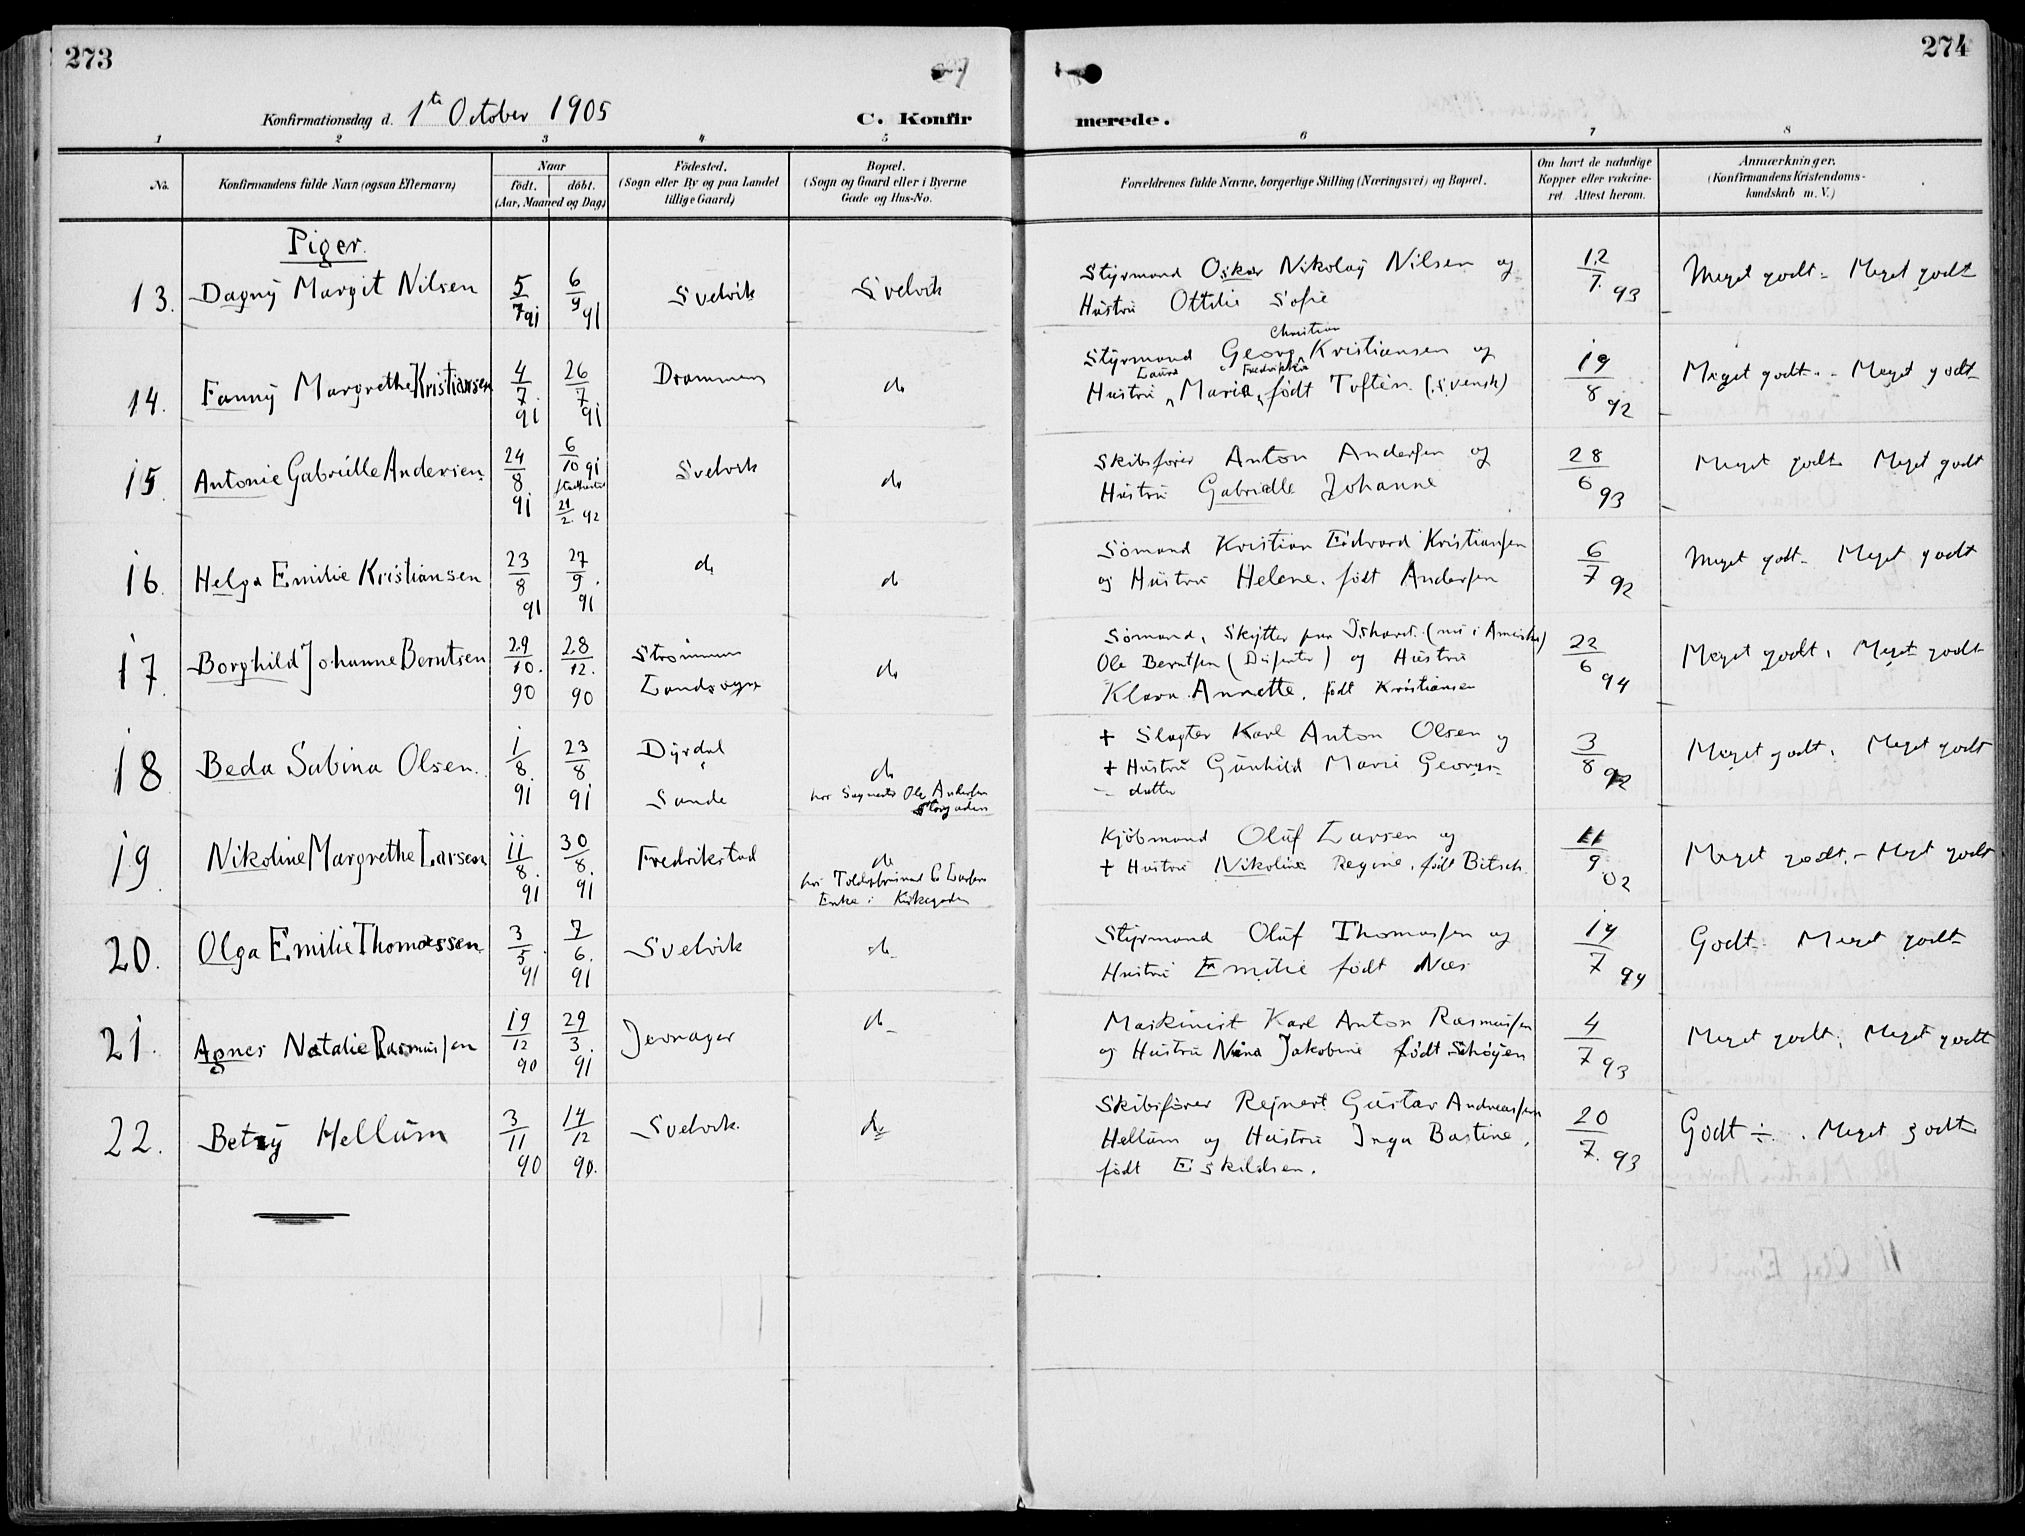 273
274
Konfirmationsdag d. 1te October 1905
C. Konfirmerede.
1 2 3 4 5 6 7 8
No.
Konfirmandens fulde Navn (ogsaa Efternavn)
Naar
födt. döbt.
(Aar, Maaned og Dag)
Födested.
(Sogn eller By og paa Landet
tillige Gaard)
Bopæl.
(Sogn og Gaard eller i Byerne
Gade og Hus-No.
Forældrenes fulde Navne, borgerlige Stilling (Næringsvei) og Bopæl.
Om havt de naturlige
Kopper eller vakcine-
ret. Attest herom.
Anmærkninger.
(Konfirmandens Kristendoms-
kundskab m. V.)
Piger.
13. Dagny Margit Nilsen 5/7 91 6/9 91 Svelvik Svelvik Styrmand Oskar Nikolay Nilsen og 12/7. 93 Meget godt - Meget godt
Hustru Ottilie Sofie
Christian
14. Fanny Margrethe Kristiansen 4/7. 91 26/7 91 Drammen do Styrmand Georg Kristiansen og 19/8 92 Meget godt. - Meget godt
Laura Fredrikke
Hustru Maria født Toftén. (svensk)
15. Antonie Gabrielle Andersen 24/8 91 6/10 91 Svelvik do Skibsfører Anton Andersen og 28/6 93 Meget godt Meget godt
21/2. 92
Hustru Gabrielle Johanne
16. Helga Emilie Kristiansen 23/8 91 27/9. 91 do do Sømand Kristian Edvard Kristiansen 6/7 92 Meget godt - Meget godt
og Hustru Helene. født Andersen
17. Borghild Johanne Berntsen 29/10. 90 28/12. 90 Strømmen do Sømand, Skytter paa Ishavet. (nu i Amerika) 22/6 94 Meget godt, Meget godt
Landsogn
Ole Berntsen ( ) og Hustru
Klara Annette, født Kristiansen
18 Beda Sabina Olsen. 1/8. 91 23/8 91 Dyrdal do + Slagter Karl Anton Olsen og 3/8 92 Meget godt, Meget godt
Sande
hos Ole Andersen
Storgaden
+ Hustru Gunhild Marie Georgs-
datter
19. Nikoline Margrethe Larsen 11/8. 91 30/8. 91 Fredrikstad do Kjøbmand Oluf Larsen og 11/9. 02 Meget godt. - Meget godt
Enke i Kirkegaden
+ Hustru Nikoline Regine, født Bitsch.
20. Olga Emilie Thomassen 3/5. 91 7/6. 91 Svelvik do Styrmand Oluf Thomassen og 14/7 94 Godt - Meget godt
Hustru Emilie født Næs
21. Agnes Natalie Rasmussen 19/12 90 29/3. 91 Jevnager do Maskinist Karl Anton Rasmussen 4/7 93 Meget godt, Meget godt
og Hustru Nina Jakobine født Schøyen
22. Betzy Hellum 3/11 90 14/12 90. Svelvik. do Skibsfører Rejnert Gustav Andreassen 20/7. 93 Godt ÷. Meget godt
Hellum og Hustru Inga Bastine,
født Eskildsen.